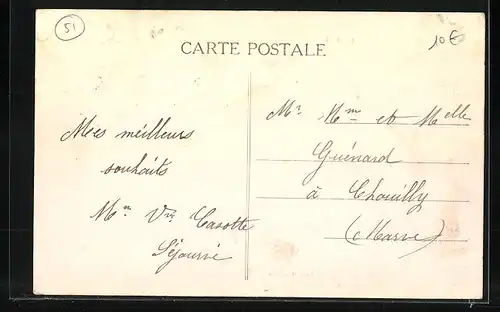 51
10€
CARTE POSTALE
Mes meilleurs
souhaits
Mm Vve Cazotte
Séjourné
Mr Mm et Melle
Guénard
à Chouilly
(Marne)